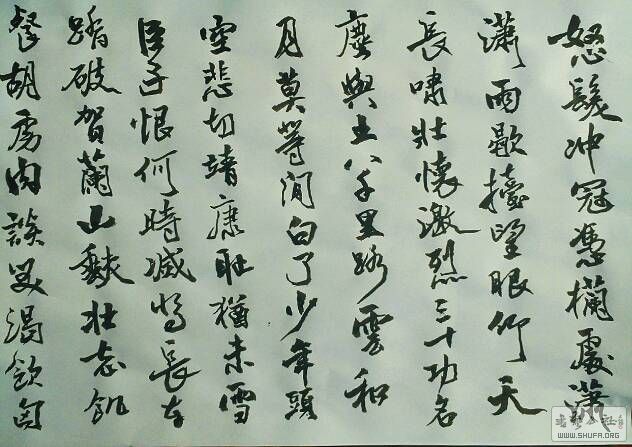 怒髮冲冠憑欄處瀟
瀟雨歇擡望眼仰天
長嘯壯懷激烈三十功名
塵與土八千里路雲和
月莫等閒白了少年頭
空悲切靖康耻猶未雪
臣子恨何時滅駕長車
踏破賀蘭山缺壯志飢
餐胡虜肉談笑渴飲匈
WWW.SHUFA.ORG